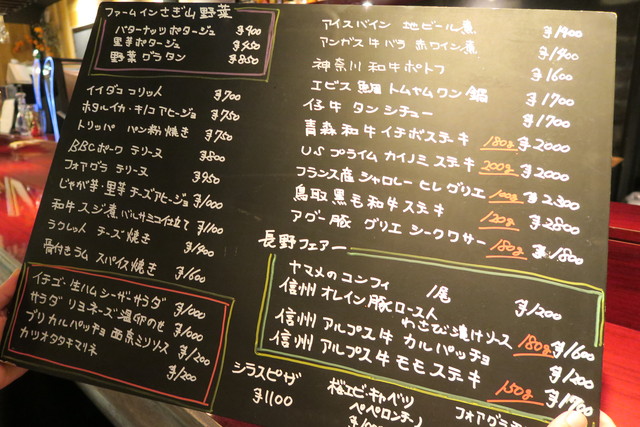 ファームイン さぎ山 野菜
バターナッツポタージュ ¥400
里芋ポタージュ ¥450
野菜グラタン ¥850
イイダコ コリット ¥700
ホタルイカ・キノコアヒージョ ¥750
トリッパ パン粉焼き ¥750
BBCポーク テリーヌ ¥800
フォアグラ テリーヌ ¥950
じゃが芋・里芋 チーズアヒージョ ¥1000
和牛スジ煮 バルサミコ仕立て ¥1100
ラクレット チーズ焼き ¥1400
骨付きラム スパイス焼き ¥1600
イチゴ・生ハム シーザーサラダ ¥1000
サラダ リヨネーズ 温卵のせ ¥1000
ブリカルパッチョ 西京ミソソース ¥1200
カツオタタキマリネ ¥1200
アイスバイン 地ビール煮 ¥1400
アンガス牛バラ 赤ワイン煮 ¥1400
神奈川 和牛ポトフ ¥1600
エビス 鯛 トムヤムクン鍋 ¥1700
仔牛 タンシチュー ¥1700
青森和牛イチボステーキ 180g ¥2000
USプライム カイノミ ステーキ 200g ¥2000
フランス産 シャロレー ヒレ グリエ 100g ¥2300
鳥取黒毛和牛ステーキ 120g ¥2800
アグー豚 グリエ シークワサー 180g ¥1800
長野フェアー
ヤマメのコンフィ 1尾 ¥1200
信州オレイン豚ロースト わさび漬けソース 180g ¥1600
信州 アルプス牛 カルパッチョ ¥1200
信州 アルプス牛 モモステーキ 150g ¥1700
シラスピザ ¥1100
桜エビキャベツ
ペペロンチーノ
フォアグラ